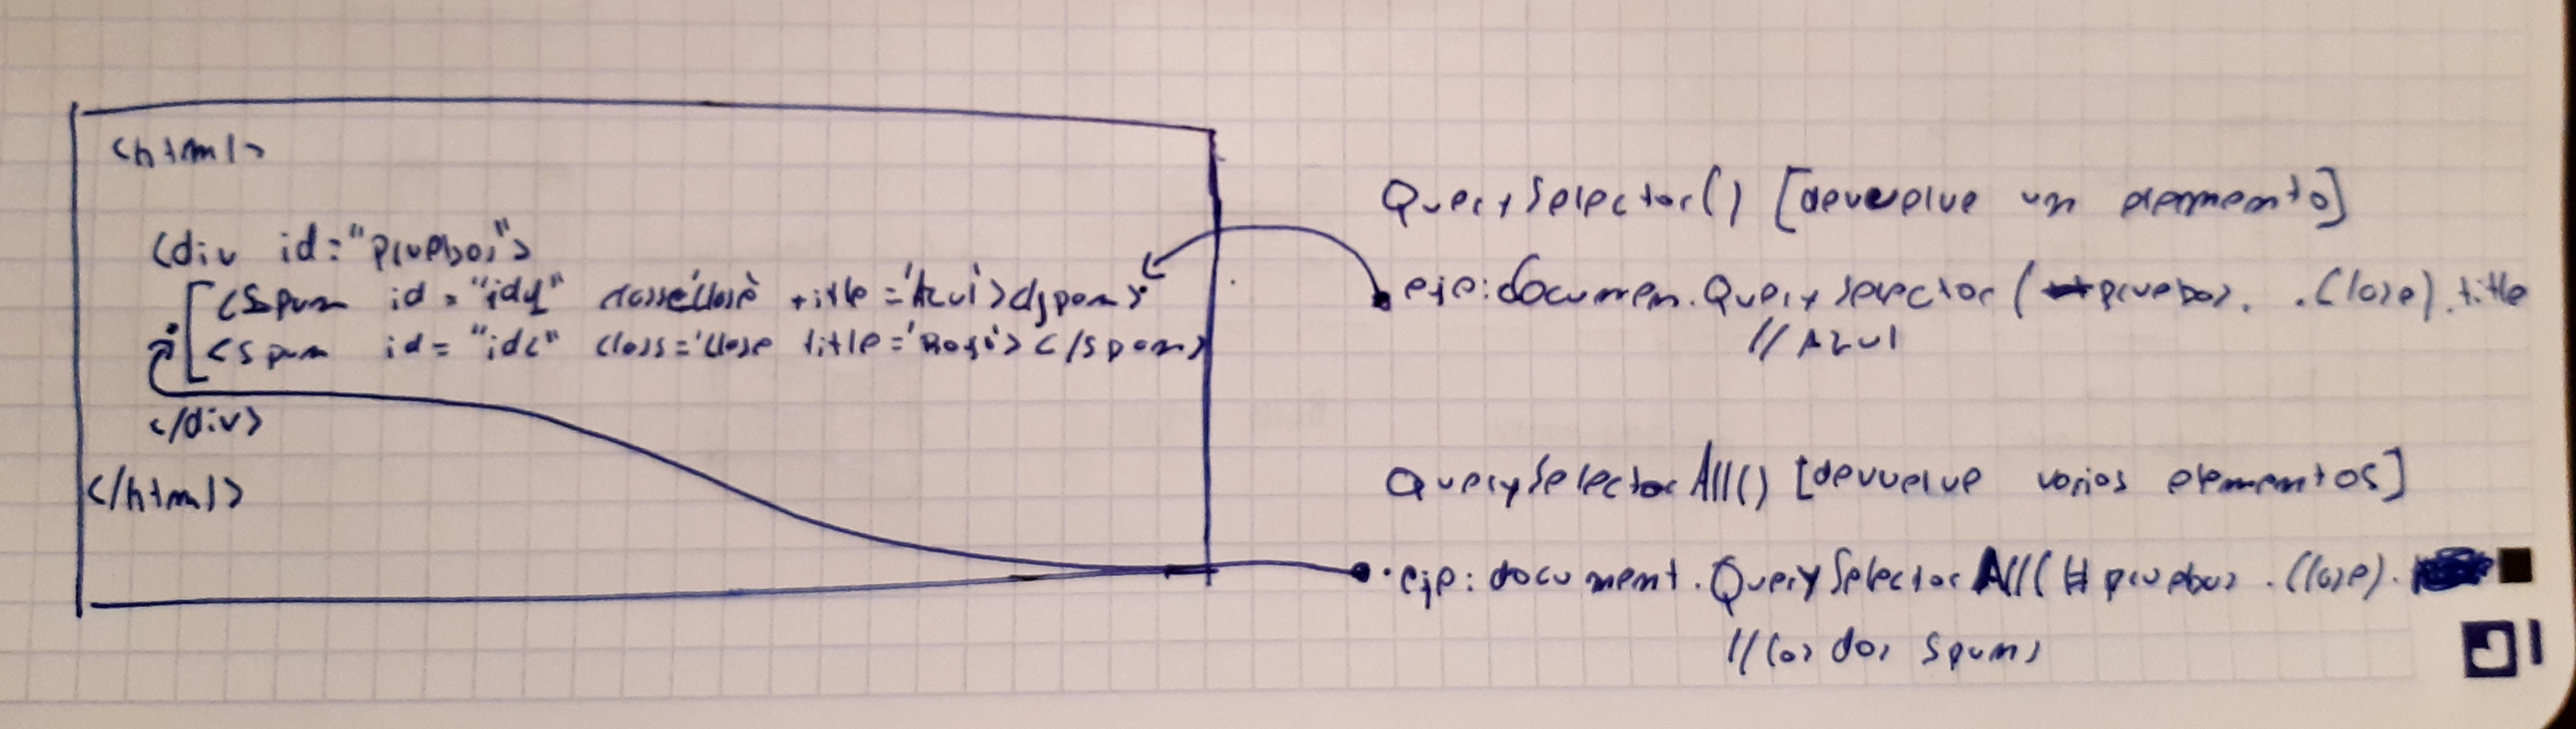 <html>
<div id="pruebas">
<Span id="id1" class='clase' title='Azul'></span>
<span id="id2" class='clase title='Rojo'></span>
</div>
</html>
QuerySelector() [devuelve un elemento]
eje: documen.QuerySelector(#pruebas. .Clase).title
// Azul
QuerySelectorAll() [devuelve varios elementos]
eje: document.QuerySelectorAll(#pruebas .Clase).
//Los dos spans